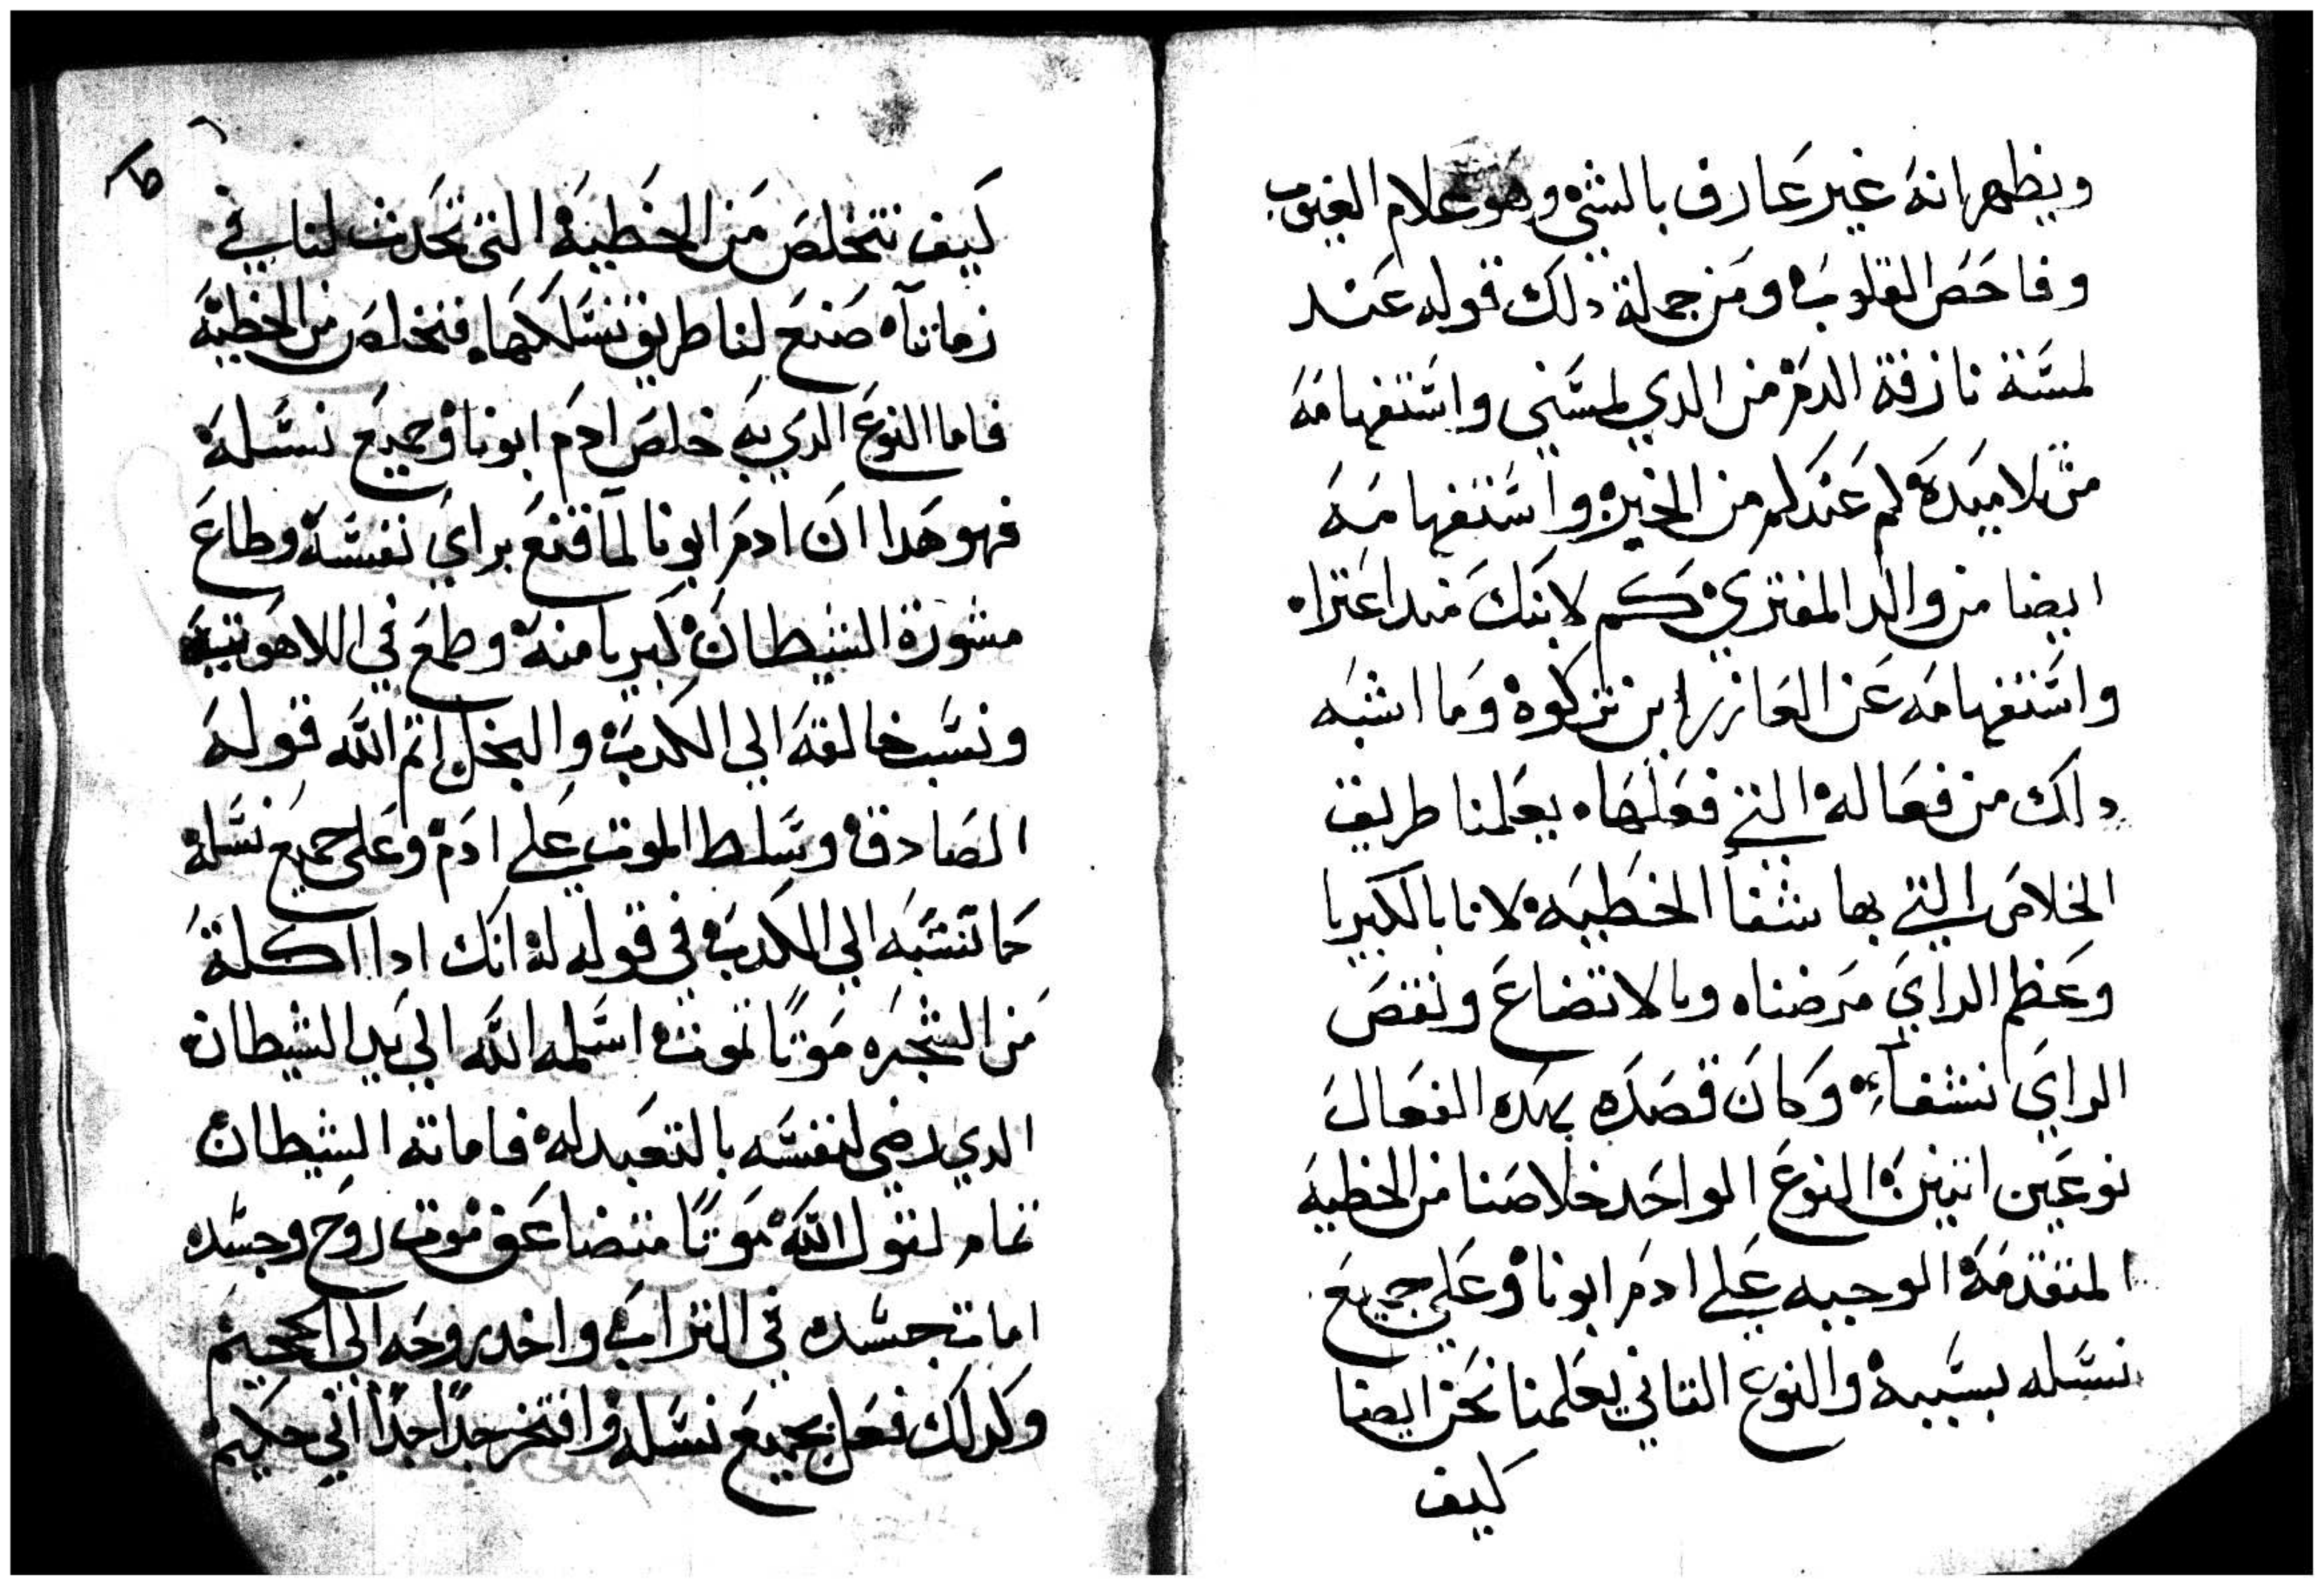 ويظهر انه غير عارف بالشي وهو علام الغيوب
وفاحص القلوب ومن جملة دلك قوله عند
لمسة نازفة الدم من الدي لمسني واستفهامه
من تلاميده كم عندكم من الخبز واستفهامه
ايضا من والد المفتري كم لابنك مند اعتراه
واستفهامه عن العازر اين تركوه وما اشبه
دلك من فعاله التي فعلها يعلمنا طريق
الخلاص التي بها شفا الخطيه لانا بالكبريا
وعظم الراي مرضناه وبالاتضاع ونقص
الراي نشفاء وكان قصده بهده الفعال
نوعين اتنين النوع الواحد خلاصنا من الخطيه
المتقدمه الوجبه علي ادم ابونا وعلي جميع
نسله بسببه والنوع التاني يعلمنا نحن ايضا
كيف
كيف نتخلص من الخطيه التي تحدث لنا في
زماننا صنع لنا طريق نسلكها فنخلص من الخطيه
فاما النوع الدي به خلص ادم ابونا وجميع نسله
فهو هدا ان ادم ابونا لما قنع براي نفسه وطاع
مشورة الشيطان كبريا منه وطمع في اللاهوتيه
ونسب خالقه الي الكدب والبخل اتم الله قوله
الصادق وسلط الموت علي ادم وعلي جميع نسله
كما نسبه الي الكدب في قوله له انك ادا اكلة
من الشجره موتًا تموت اسلمه الله الي يد الشيطان
الدي رضي لنفسه بالتعبد له فاماته الشيطان
تمام لقول الله موتًا متضاعق موت روح وجسد
امات جسده في التراب واخد روحه الي الجحيم
وكدلك فعل بجميع نسله وافتخر جدًا جدًا اني حكيم